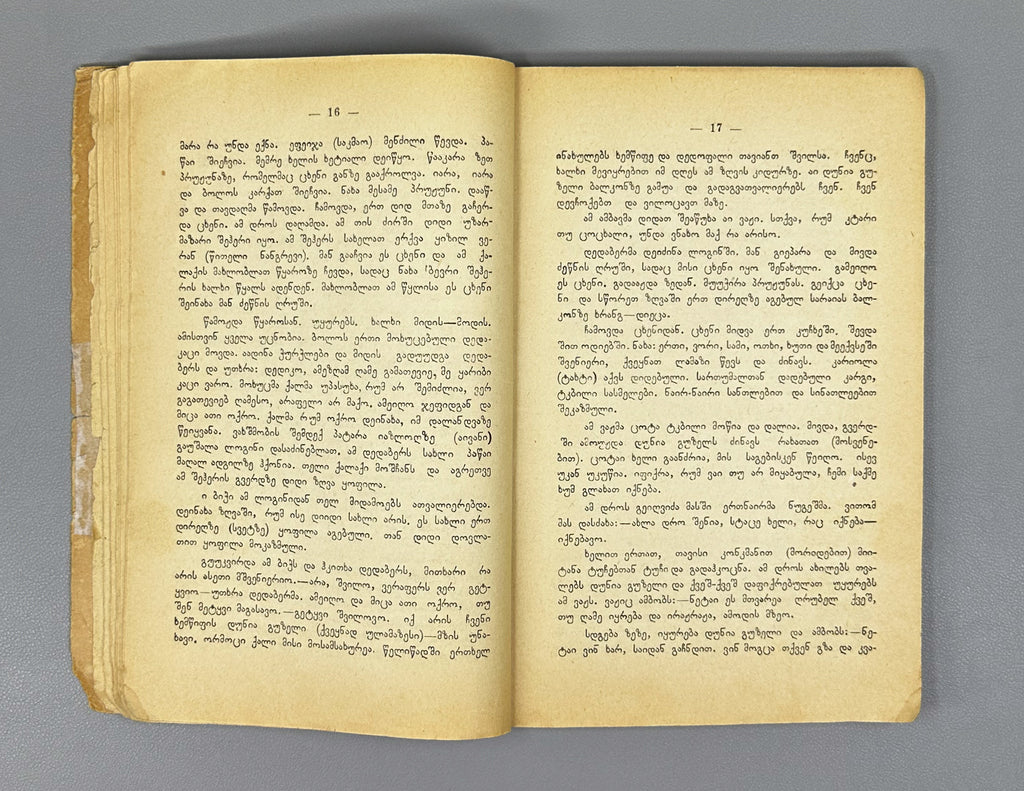 — 16 —
მარა რა უნდა ექნა. ეფეჯა (საკმაო) მენძილი წევდა. პა-
წაი შიეჩვია. მემრე ხელის ხეტიალი დეიწყო. წააკარა ზეთ
პრუჟუნაზე, რომელმაც ცხენი განზე გააქროლვა. იარა, იარა
და ბოლოს კარქათ შიეჩვია. ნახა მესამე პრუჟუნი. დააწ-
ვა და თავდაღმა წამოვდა. ჩამოვდა, ერთ დიდ მთაზე გაჩერ-
და ცხენი. ამ დროს დაღამდა. ამ თის ძირში დიდი უზარ-
მაზარი შეჰერი იყო. ამ შეჰერს სახელათ ერქვა ყიზილ ვე-
რან (წითელი ნანგრევი). მან გააჩვია ეს ცხენი და ამ ქა-
ლაქის მახლობლათ წყაროზე ჩევდა, სადაც ნახა ბევრი შეჰე-
რის ხალხი წყალს ადენდენ. მახლობლათ ამ წყლისა ეს ცხენი
შეინახა მან ძეწნის ღრუში.
წამოჟდა წყაროსან. უყურებს. ხალხი მიდის—მოდის.
ამისთვინ ყველა უცნობია. ბოლოს ერთი მოხუცებული დედა-
კაცი მოვდა. აადინა ჭურჭლები და მიდის გადუუდგა დედა-
ბერს და უთხრა: დედიკო, ამეზღამ ღამე გამათევიე, მე ყარიბი
კაცი ვარო. მოხუცმა ქალმა უპასუხა, რუმ არ შემიძლია, ვერ
გაგათევიებ ღამესო, არაფელი არ მაქო. ამეიღო ჯეფიდგან და
მიცა ათი ოქრო. ქალმა რუმ ოქრო დეინახა, იმ დალანდვაზე
წეიყვანა. ვახშმობის შემდექ პატარა იაზლოღზე (აივანი)
გაუშალა ლოგინი დასაძინებლათ. ამ დედაბერს სახლი პაწაი
მაღალ ადგილზე ჰქონია. თელი ქალაქი მოშჩანს და აგრეთვე
ამ შეჰერის გვერდზე დიდი ზღვა ყოფილა.
ი ბიჭი ამ ლოგინიდან თელ მიდამოებს ათვალიერებდა.
დეინახა ზღვაში, რუმ ისე დიიდი სახლი არის. ეს სახლი ერთ
დირეღზე (სვეტზე) ყოფილა აგებული. თან დიდი დოვლა-
თით ყოფილა მოკაზმული.
გუუკვირდა ამ ბიჭს და ჰკითხა დედაბერს, მითხარი რა
არის ასეთი მშვენიერიო.—არა, შვილო, ვერაფერს ვერ გეტ-
ყვიო—უთხრა დედაბერმა. ამეიღო და მიცა ათი ოქრო, თუ
შენ მეტყვი მაგასავო.—გეტყვი შვილოვო. იქ არის ჩვენი
ხემწიფის დუნია გუზელი (ქვეყნად ულამაზესი)—მზის უნა-
ხავი, ორმოცი ქალი მისი მოსამსახურეა. წელიწადში ერთხელ
— 17 —
ინახულებს ხემწიფე და დედოფალი თავიანთ შვილსა. ჩვენც,
ხალხი მევიყრებით იმ დღეს ამ ზღვის კიდურზე. აი დუნია გუ-
ზელი ბალკონზე გამუა და გადაგვათვალიერებს ჩვენ. ჩვენ
დევჩოქებთ და ვილოცავთ მაზე.
ამ ამბავმა დიდათ შეაწუხა აი ვაჟი. სთქვა, რუმ კტარი
თუ ცოცხალი, უნდა ვნახო მაქ რა არისო.
დედაბერმა დეიძინა ლოგინში. მან გიეპარა და მივდა
ძეწნის ღრუში, სადაც მისი ცხენი იყო შენახული. გამეიღო
ეს ცხენი, გადააჟდა ზედან. მუუჭირა პრუჟუნას. გეიქცა ცხე-
ნი და სწორეთ ზღვაში ერთ დირეღზე აგებულ სარაიას ბალ-
კონზე ხრანგ—დიეცა.
ჩამოვდა ცხენიდან. ცხენი მიდვა ერთ კუჩხეში. შევდა
შით ოდიებში. ნახა: ერთი, ვორი, სამი, ოთხი, ხუთი და მეექვსეში
შვენიერი, ქვეყნათ ლამაზი წევს და ძინავს. კარიოლა
(ტახტი) აქვს დიდებული. სართუმალთან დადებული კარგი,
ტკბილი სასმელები. ნაირ-ნაირი სანთლებით და სინათლეებით
შეკაზმული.
ამ ვაჟმა ცოტა ტკბილი მოწია და დალია. მივდა, გვერდ-
ში ამოუჟდა დუნია გუზელს ძინავს რახათათ (მოსვენე-
ბით). ცოტაი ხელი გაანძრია, მის საგებისკენ წეიღო. ისევ
უკან უკუწია. იფიქრა, რუმ ვაი თუ არ მიყაბულა, ჩემი საქმე
ხუმ გლახათ იქნება.
ამ დროს გეიღვიძა მასში ერთნაირმა ნუგეშმა. ვითომ
მას დასძახა:—ახლა დრო შენია, სტაცე ხელი, რაც იქნება—
იქნებავო.
ხელით ერთათ, თავისი კონკმანით (მორიდებით) მიი-
ტანა ტუჩებთან ტუჩი და გადაჰკოცნა. ამ დროს ახილებს თვა-
ლებს დუნია გუზელი და ქვეშ-ქვეშ დაფიქრებულათ უყურებს
ამ ვაჟს. ვაჟიც ამბობს:—ნეტაი ეს მთვარეა ღრუბელ ქვეშ,
თუ ღამე იყრება და ირაჟრაჟა, ამოდის მზეო.
სდგება ზეზე, იყურება დუნია გუზელი და ამბობს:—ნე-
ტაი ვინ ხარ, საიდან გაჩნდით. ვინ მოგცა თქვენ გზა და კვა-